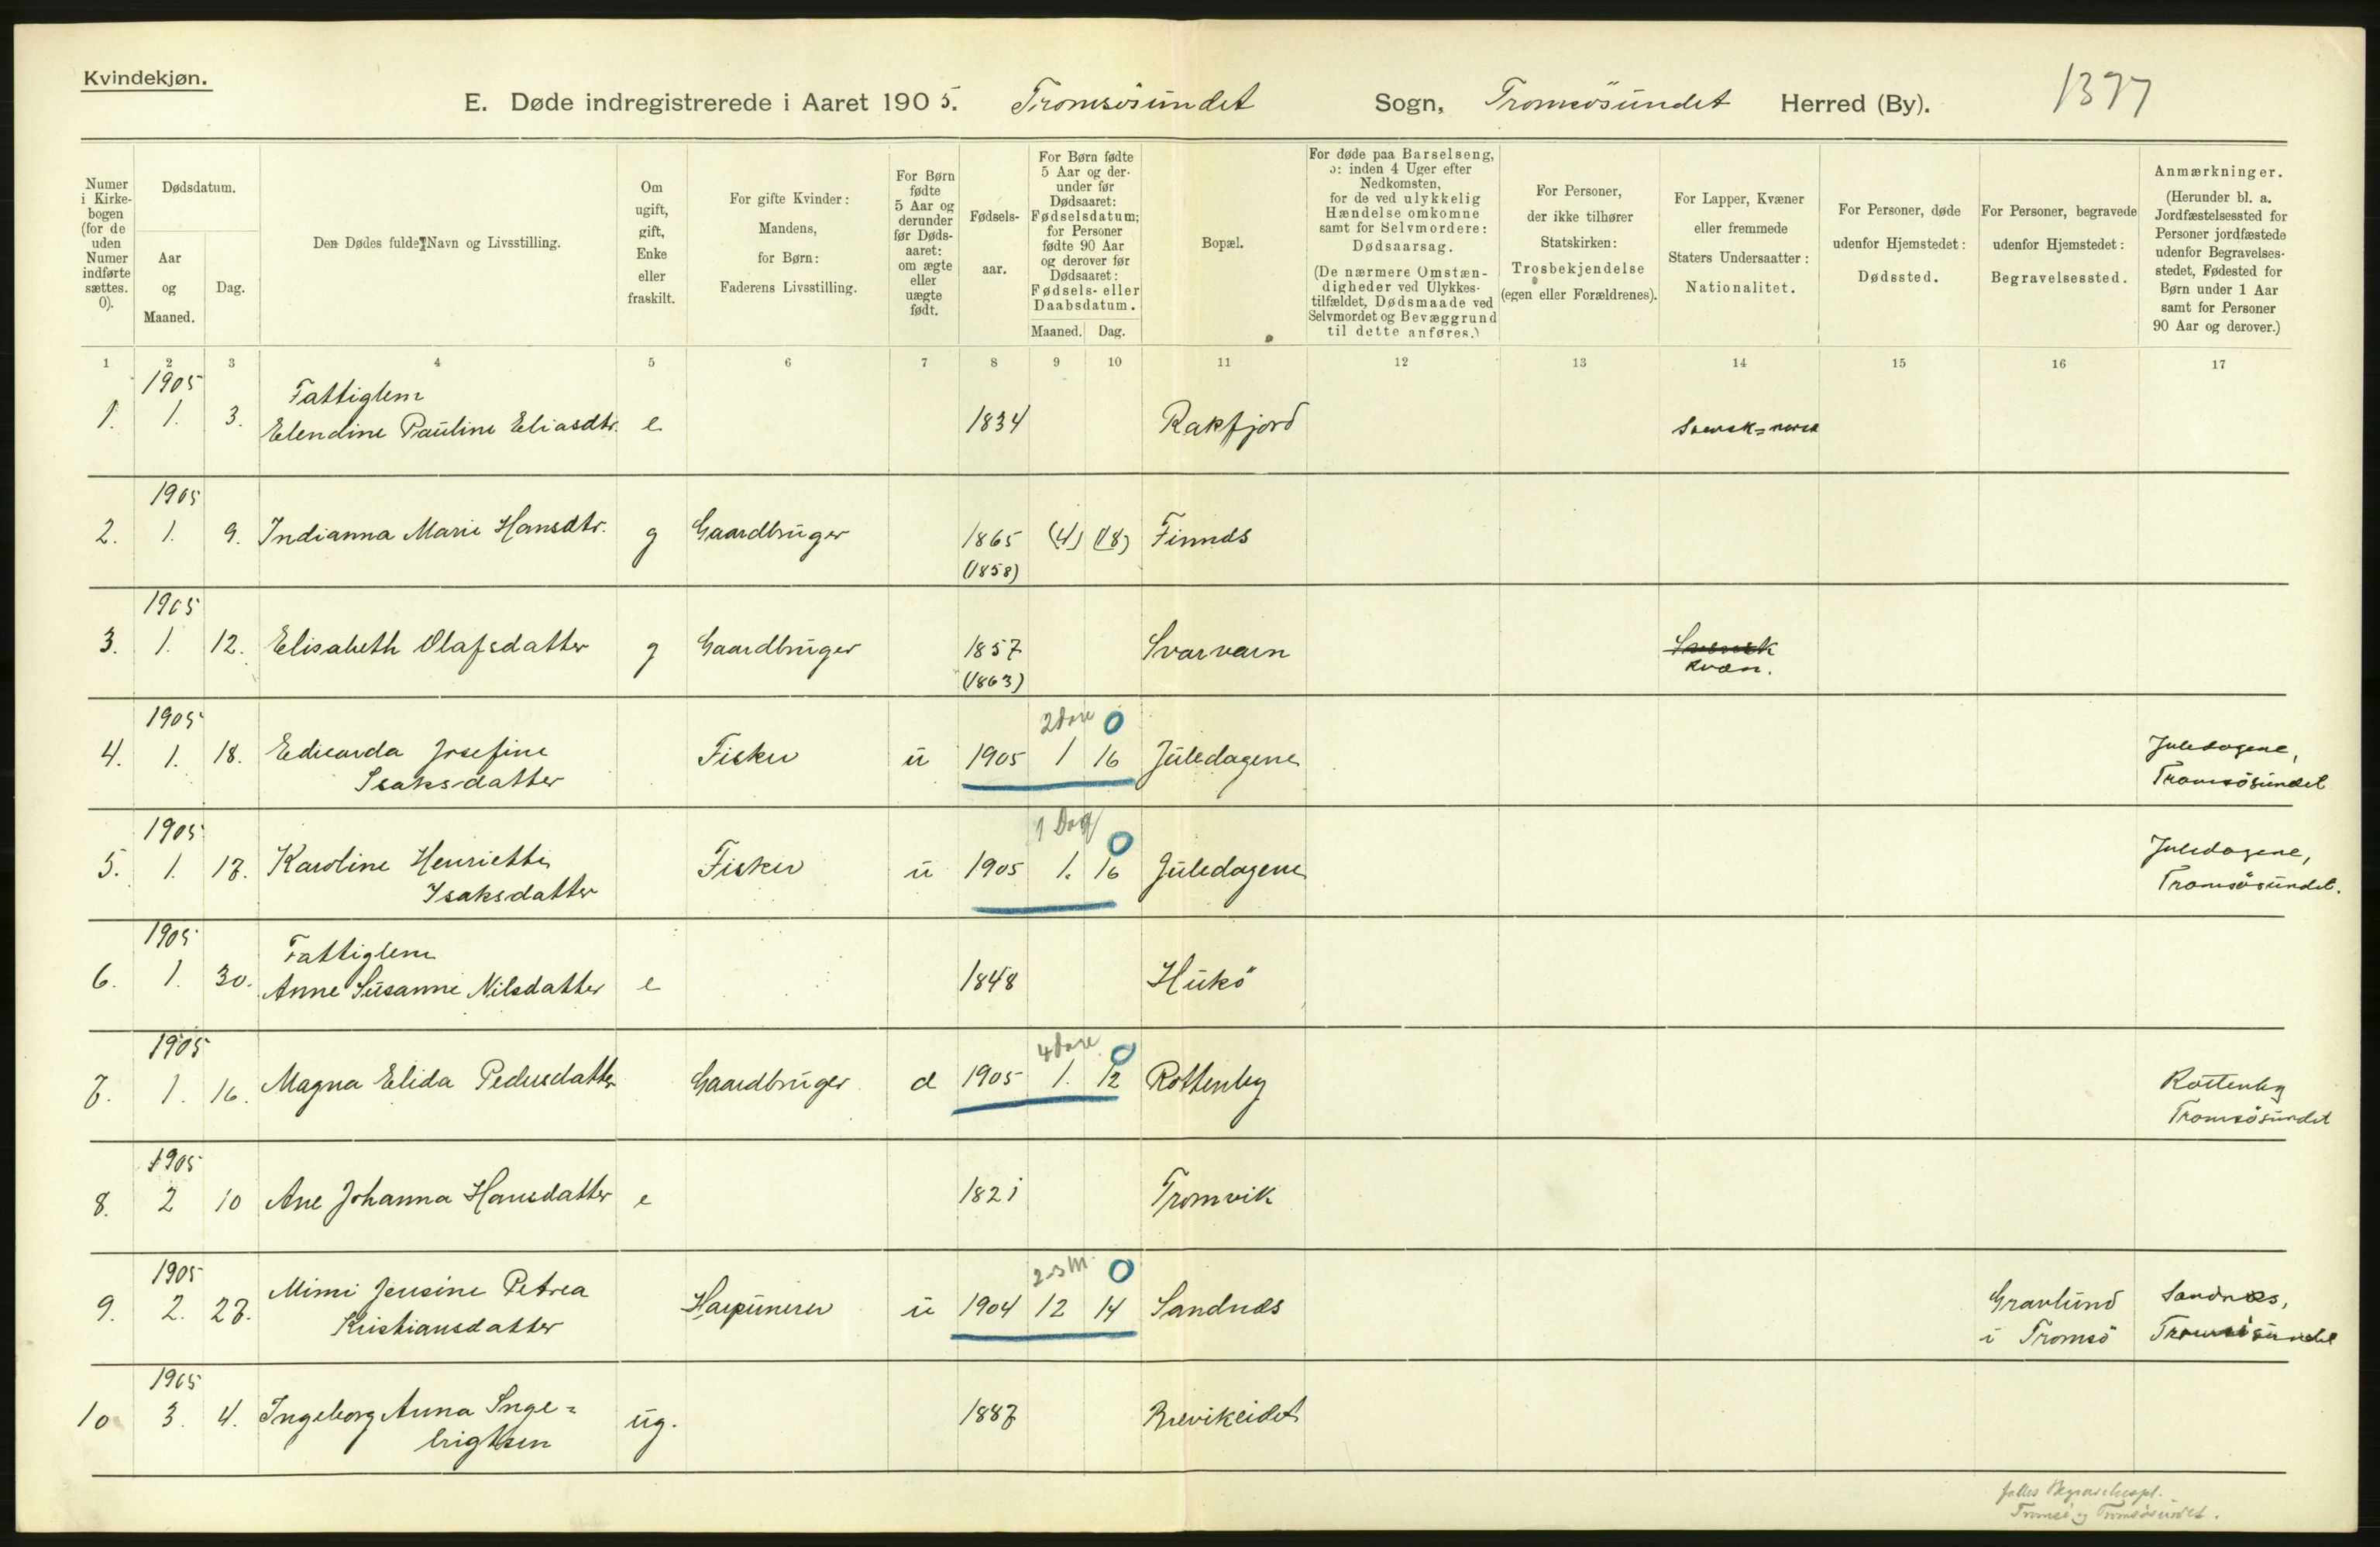 Kvindekjøn.
E. Døde indregistrerede i Aaret 1905. Tromsøsundet Sogn, Tromsøsundet Herred (By). 1377
Numer i Kirkebogen (for de uden Numer indførte sættes. 0).
Dødsdatum.
Aar og Maaned.
Dag.
Den Dødes fulde Navn og Livsstilling.
Om ugift, gift, Enke eller fraskilt.
For gifte Kvinder: Mandens, for Børn: Faderens Livsstilling.
For Børn fødte 5 Aar og derunder før Dødsaaret: om ægte eller uægte født.
Fødselsaar.
For Børn fødte 5 Aar og derunder før Dødsaaret: Fødselsdatum; for Personer fødte 90 Aar og derover før Dødsaaret: Fødsels- eller Daabsdatum.
Maaned. Dag.
Bopæl.
For døde paa Barselseng, ɔ: inden 4 Uger efter Nedkomsten, for de ved ulykkelig Hændelse omkomne samt for Selvmordere: Dødsaarsag.
(De nærmere Omstændigheder ved Ulykkestilfældet, Dødsmaade ved Selvmordet og Bevæggrund til dette anføres.)
For Personer, der ikke tilhører Statskirken: Trosbekjendelse (egen eller Forældrenes).
For Lapper, Kvæner eller fremmede Staters Undersaatter: Nationalitet.
For Personer, døde udenfor Hjemstedet: Dødssted.
For Personer, begravede udenfor Hjemstedet: Begravelsessted.
Anmærkninger.
(Herunder bl. a. Jordfæstelsessted for Personer jordfæstede udenfor Begravelsesstedet, Fødested for Børn under 1 Aar samt for Personer 90 Aar og derover.)
1 2 3 4 5 6 7 8 9 10 11 12 13 14 15 16 17
1905 Fattiglem
1. 1. 3. Elendine Pauline Eliasdtr. e 1834 Rakfjord Svensk=norsk
1905
2. 1. 9. Indianna Marie Hansdtr. g Gaardbruger 1865 (4) (18) Finnæs
(1858)
1905
3. 1. 12. Elisabeth Olafsdatter g Gaardbruger 1857 Svarvarn Svensk
(1863) kvæn.
1905 2 Dage 0
4. 1. 18. Edvarda Josefine Fisker u 1905 1 16 Juledagene Juledagene,
Isaksdatter Tromsøsundet
1905 1 Dag 0
5. 1. 17. Karoline Henriette Fisker u 1905 1. 16 Juledagene Juledagene,
Isaksdatter Tromsøsundet.
1905 Fattiglem
6. 1. 30. Anne Susanne Nilsdatter e 1848 Hukø
1905 4 Dage 0
7. 1. 16. Magna Elida Pedersdatter Gaardbruger d 1905 1. 12 Rottenby Rottenby
Tromsøsundet
1905
8. 2 10 Ane Johanna Hansdatter e 1821 Tromvik
1905 2-3 M. 0
9. 2. 27. Mimi Jensine Petrea Harpunerer u 1904 12 14 Sandnæs Gravlund Sandnæs,
Kristiansdatter i Tromsø Tromsøsundet
1905
10 3. 4. Ingeborg Anna Inge= ug. 1887 Brevikeidet
brigtsen
fælles Begravelsespl.
Tromsø og Tromsøsundet.